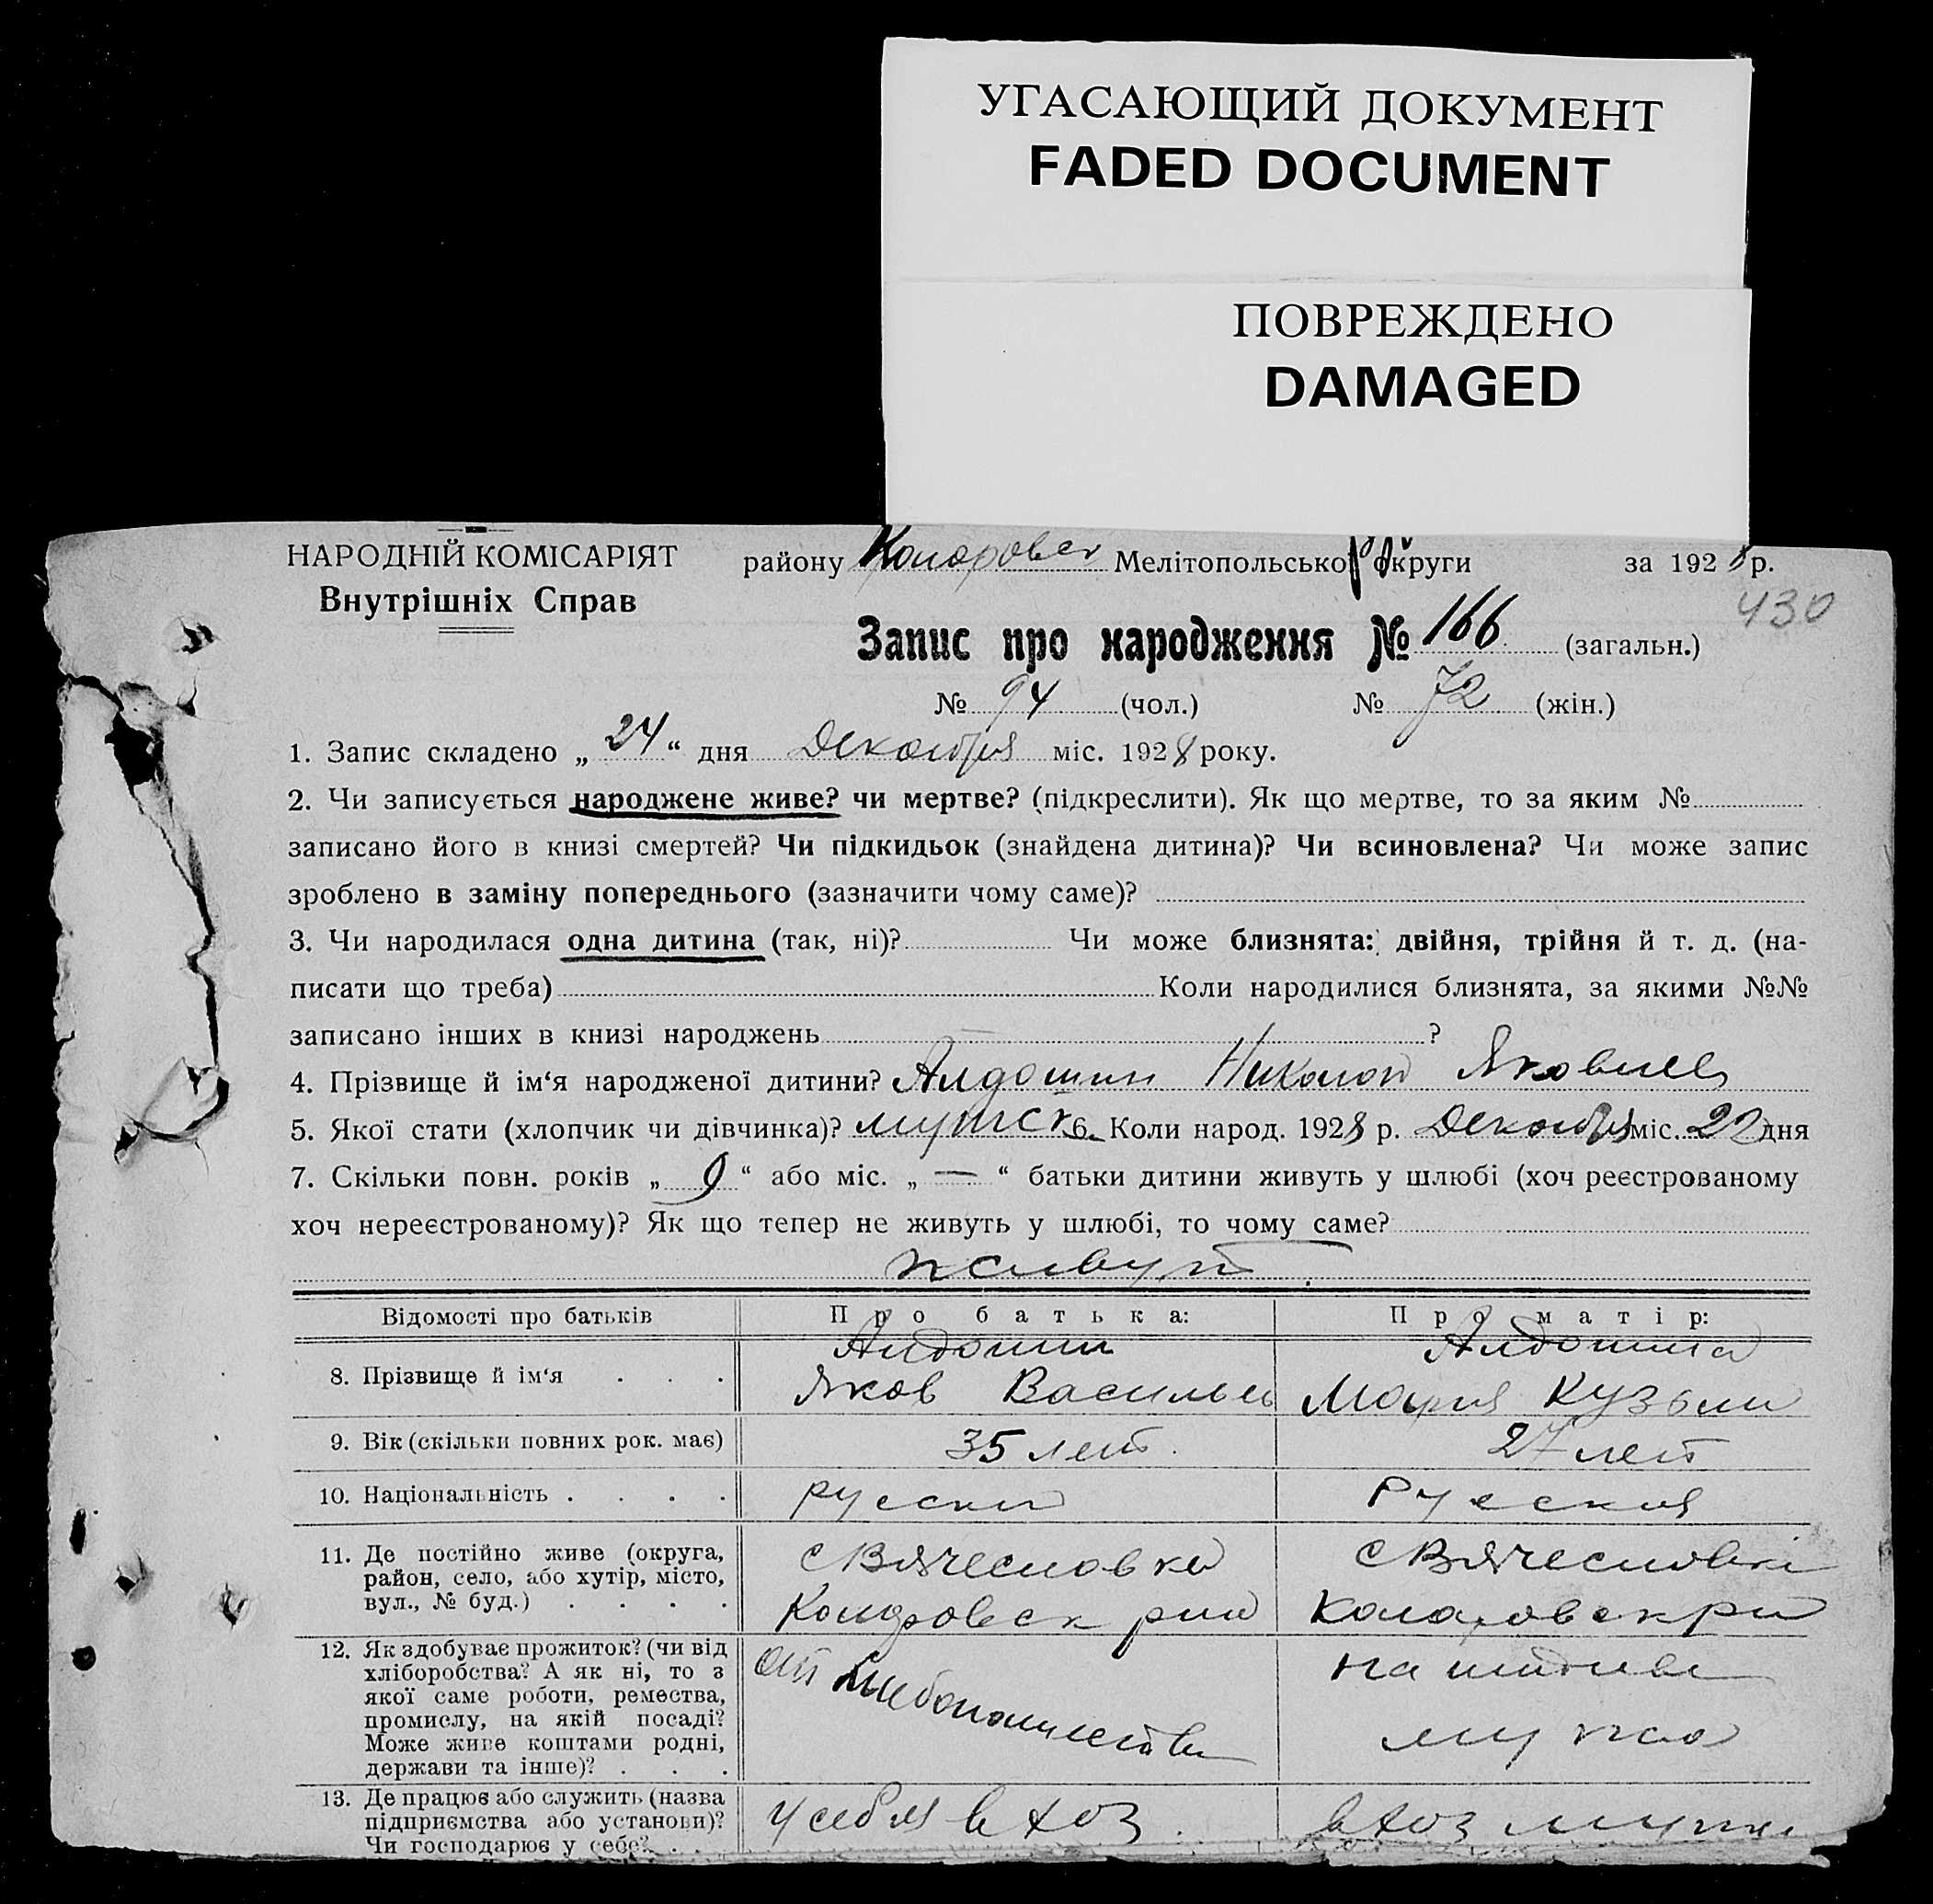 УГАСАЮЩИЙ ДОКУМЕНТ
FADED DOCUMENT
ПОВРЕЖДЕНО
DAMAGED
НАРОДНІЙ КОМІСАРІЯТ
Внутрішніх Справ
району Коларовск Мелітопольської округи за 1928 р.
430
Запис про народження № 166 (загальн.)
№ 94 (чол.) № 72 (жін.)
1. Запис складено „ 24 “ дня Декабря міс. 1928 року.
2. Чи записується народжене живе? чи мертве? (підкреслити). Як що мертве, то за яким №
записано його в книзі смертей? Чи підкидьок (знайдена дитина)? Чи всиновлена? Чи може запис
зроблено в заміну попереднього (зазначити чому саме)?
3. Чи народилася одна дитина (так, ні)? Чи може близнята: двійня, трійня й т. д. (на-
писати що треба) Коли народилися близнята, за якими №№
записано інших в книзі народжень — ?
4. Прізвище й ім‘я народженої дитини? Алдошин Николай Яковлев
5. Якої стати (хлопчик чи дівчинка)? мужск 6. Коли народ. 1928 р. Декабря міс. 22 дня
7. Скільки повн. років „ 9 “ або міс. „ — “ батьки дитини живуть у шлюбі (хоч реєстрованому
хоч нереєстрованому)? Як що тепер не живуть у шлюбі, то чому саме?
живут
Відомості про батьків Про батька: Про матір:
8. Прізвище й ім‘я . . . Алдошин Яков Василь Алдошина Мария Кузьми
9. Вік (скільки повних рок. має) 35 лет. 27 лет
10. Національність . . . . русски Русския
11. Де постійно живе (округа,
район, село, або хутір, місто,
вул., № буд.) . . . .
с Вячесловка
Коларовск рна
с Вячесловкі
Коларовск р
12. Як здобуває прожиток? (чи від
хліборобства? А як ні, то з
якої саме роботи, ремества,
промислу, на якій посаді?
Може живе коштами родні,
держави та інше)? . . .
От
на иждиве
мужа
13. Де працює або служить (назва
підприємства або установи)?
Чи господарює у себе? . .
у себя в хоз.
в хоз мужа